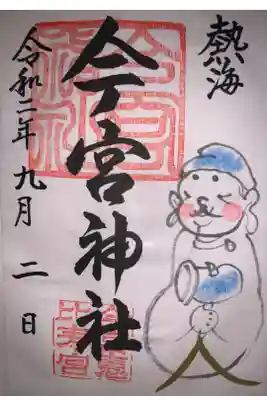 熱海
今宮神社
令和二年九月二日